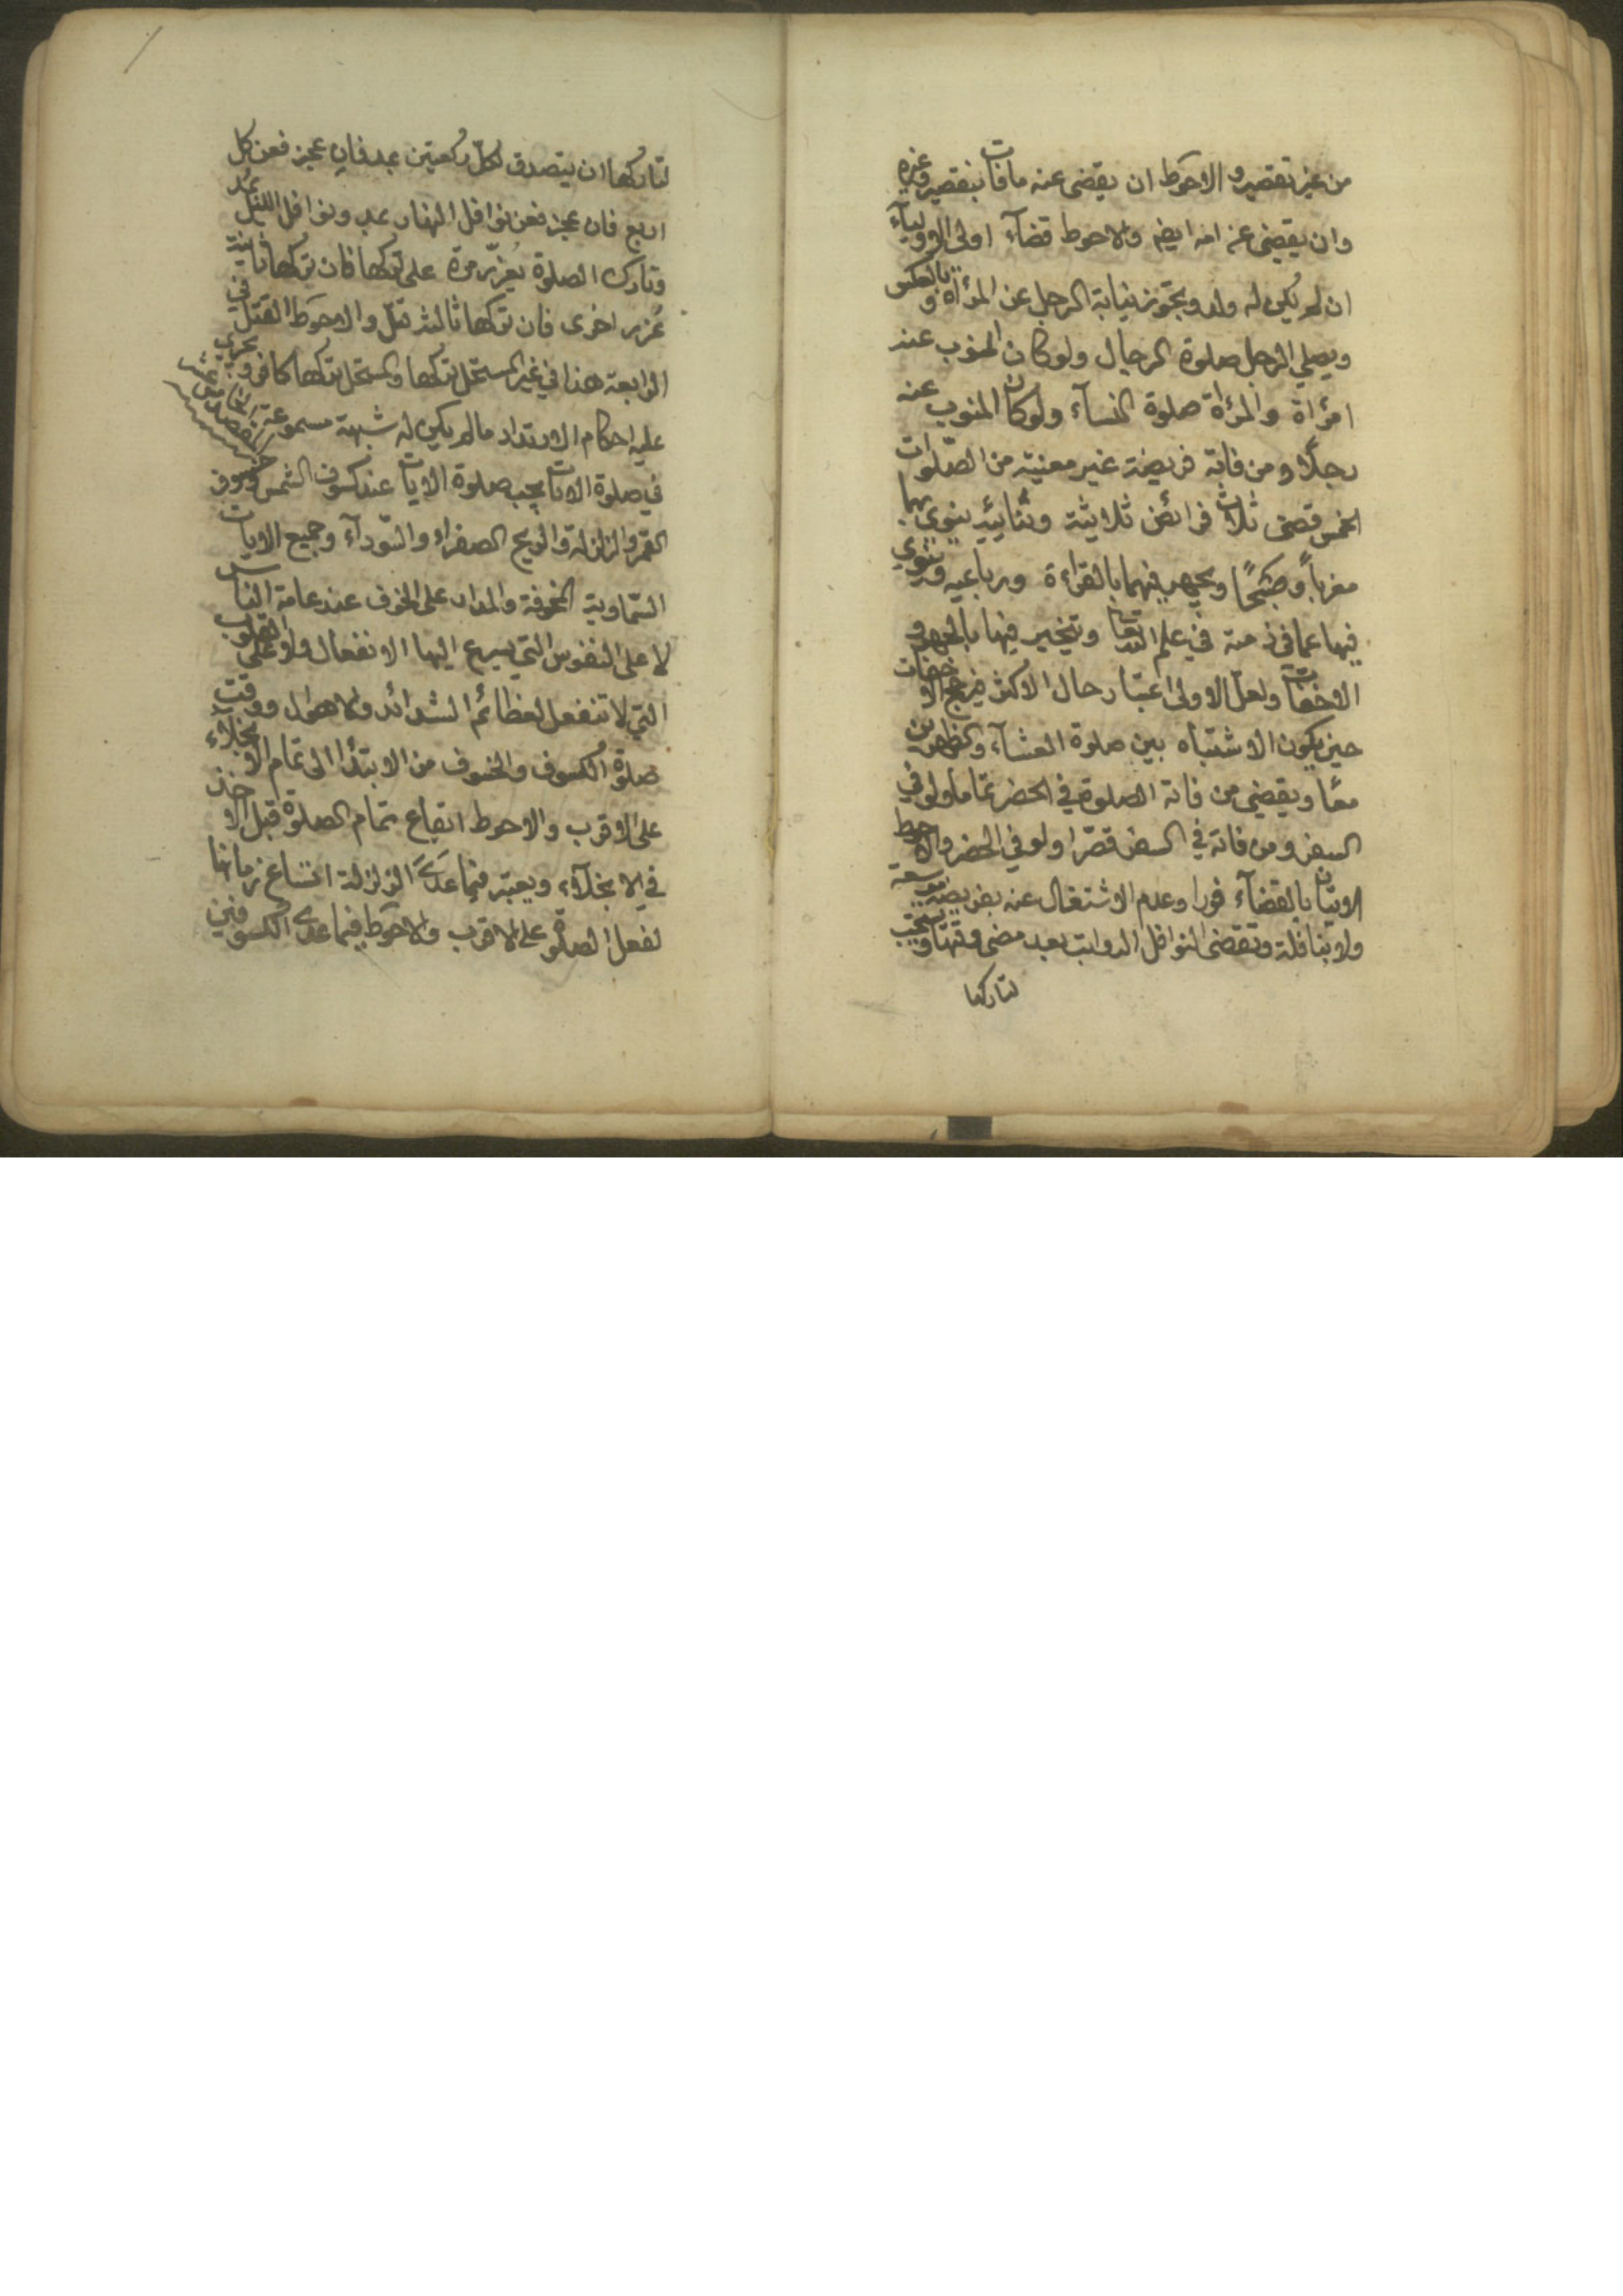 من غير تقصير و الاحوط ان يقضى عنه ما فات بتقصير وغيره
وان يقضى عن امه ايضه والاحوط قضآء اولى الاوليآء
ان لم يكن له ولد ويجوز نيابة الرجل عن المرأة وبالعكس
ويصلي الرجل صلوة الرجال ولو كان المنوب عنه
امرأة والمرأة صلوة النسآء ولو كان المنوب عنه
رجلًا ومن فاته فريضة غير معنية من الصلوات
الخمس قضى ثلاث فرائض ثلاثية وثنائية ينوي بها
مغرباً وصبحًا ويجهر فيهما بالقراءة ورباعيه وينوي
فيها عما في ذمته في علم الله تعا ويتخير فيها بالجهر و
الاخفات ولعل الاولى اعتبار حال الاكثر فيرجح الاخفات
حين يكون الاشتباه بين صلوة العشآء والظهرين
معًا ويقضي من فاته الصلوة في الحضر تماما ولو في
السفر ومن فاته في السفر قصرا ولو في الحضر والاحوط
الاتيان بالقضآء فورا وعدم الاشتغال عنه بفريضة موسعة
ولا بنافلة وتقضى النوافل الرواتب بعد مضى وقتها ويستحب
لتاركها
لتاركها ان يتصدق لكل ركعتين بمد فان عجز فعن كل
اربع فان عجز فعن نوافل النهار بمد ونوافل الليل بمد
وتارك الصلوة يعزّر مرة على تركها فان تركها ثانية
عُزر اخرى فان تركها ثالثه قتل والاحوط القتل في
الرابعة هذا في غير المستحل تركها والمستحل تركها كافر ويجري
عليه احكام الارتداد ما لم يكن له شبهة مسموعة الفصل الخامس عشر
في صلوة الايات يجب صلوة الايات عند كسوف الشمس وخسوف
القمر والزلزلة والريح الصفراء والسّودآء وجميع الايات
السّماوية المخوفة والمدار على الخوف عند عامة الناس
لا على النفوس التي يسرع اليها الانفعال ولا على القلوب
التي لا تنفعل لعظائم الشدائد والاهوال ووقت
صلوة الكسوف والخسوف من الابتدا الى تمام الانجلآء
على الاقرب والاحوط ايقاع تمام الصلوة قبل الاخذ
في الانجلآء ويعتبر فيما عدى الزلزلة اتساع زمانها
لفعل الصلوة على الاقرب والاحوط فيما عدى الكسوفين